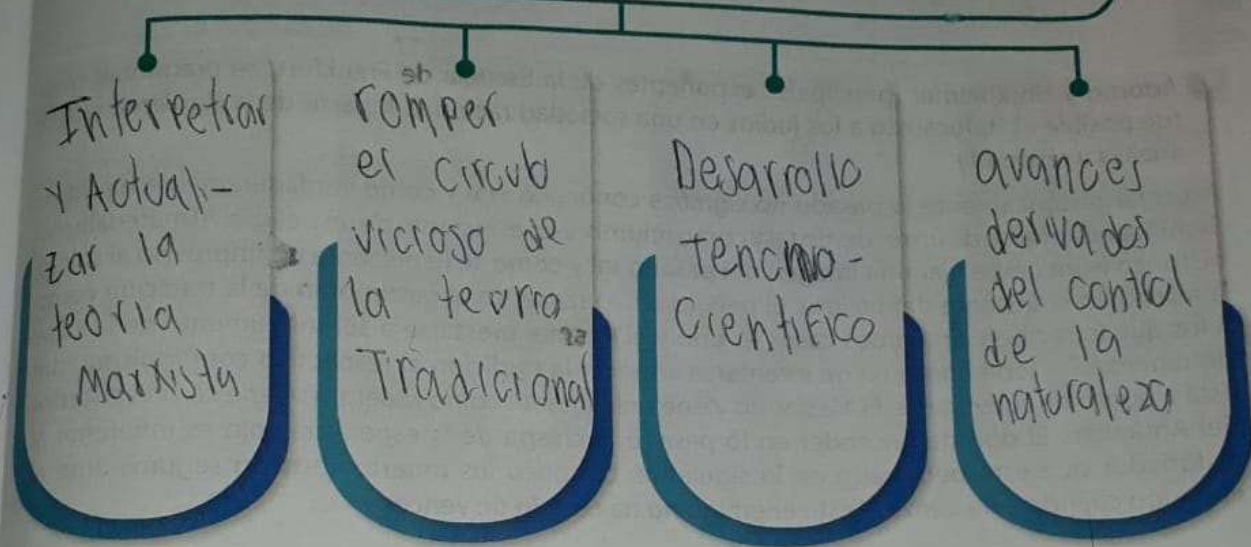 Interpetrar
y Actuali-
zar la
teoria
Marxista
romper
el circulo
vicioso de
la teoria
Tradicional
Desarrollo
tencno-
Cientifico
avances
derivados
del control
de la
naturaleza